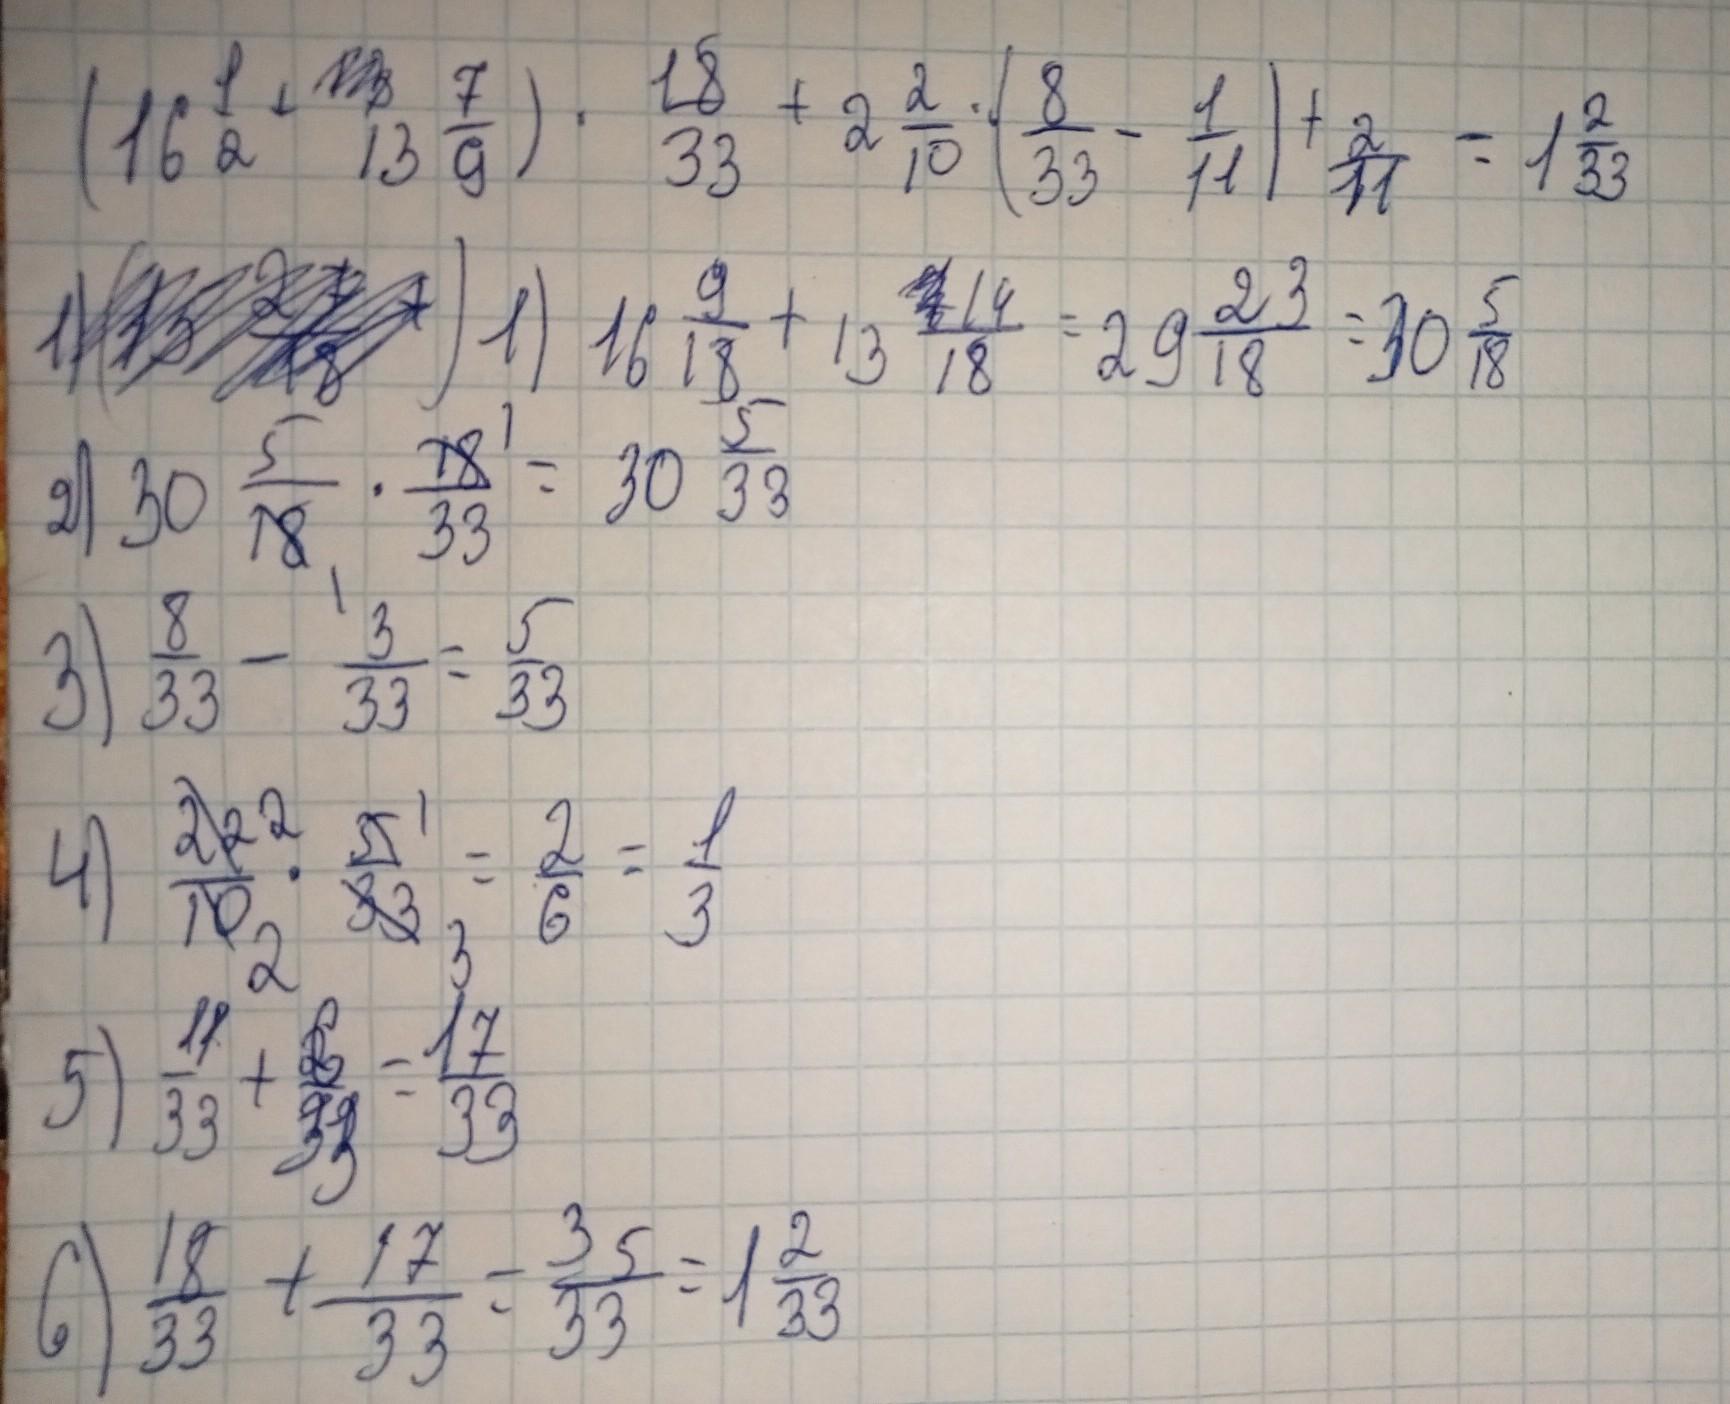 (16 1/2 + 13 7/9) · 18/33 + 2 2/10 · (8/33 - 1/11) + 2/11 = 1 2/33
1) 1) 16 9/18 + 13 14/18 = 29 23/18 = 30 5/18
2) 30 5/18 · 18/33 1 = 30 5/33
3) 8/33 - 1 3/33 = 5/33
4) 22/10 2 2 · 5/33 1 3 = 2/6 = 1/3
5) 11/33 + 6/33 = 17/33
6) 18/33 + 17/33 = 35/33 = 1 2/33